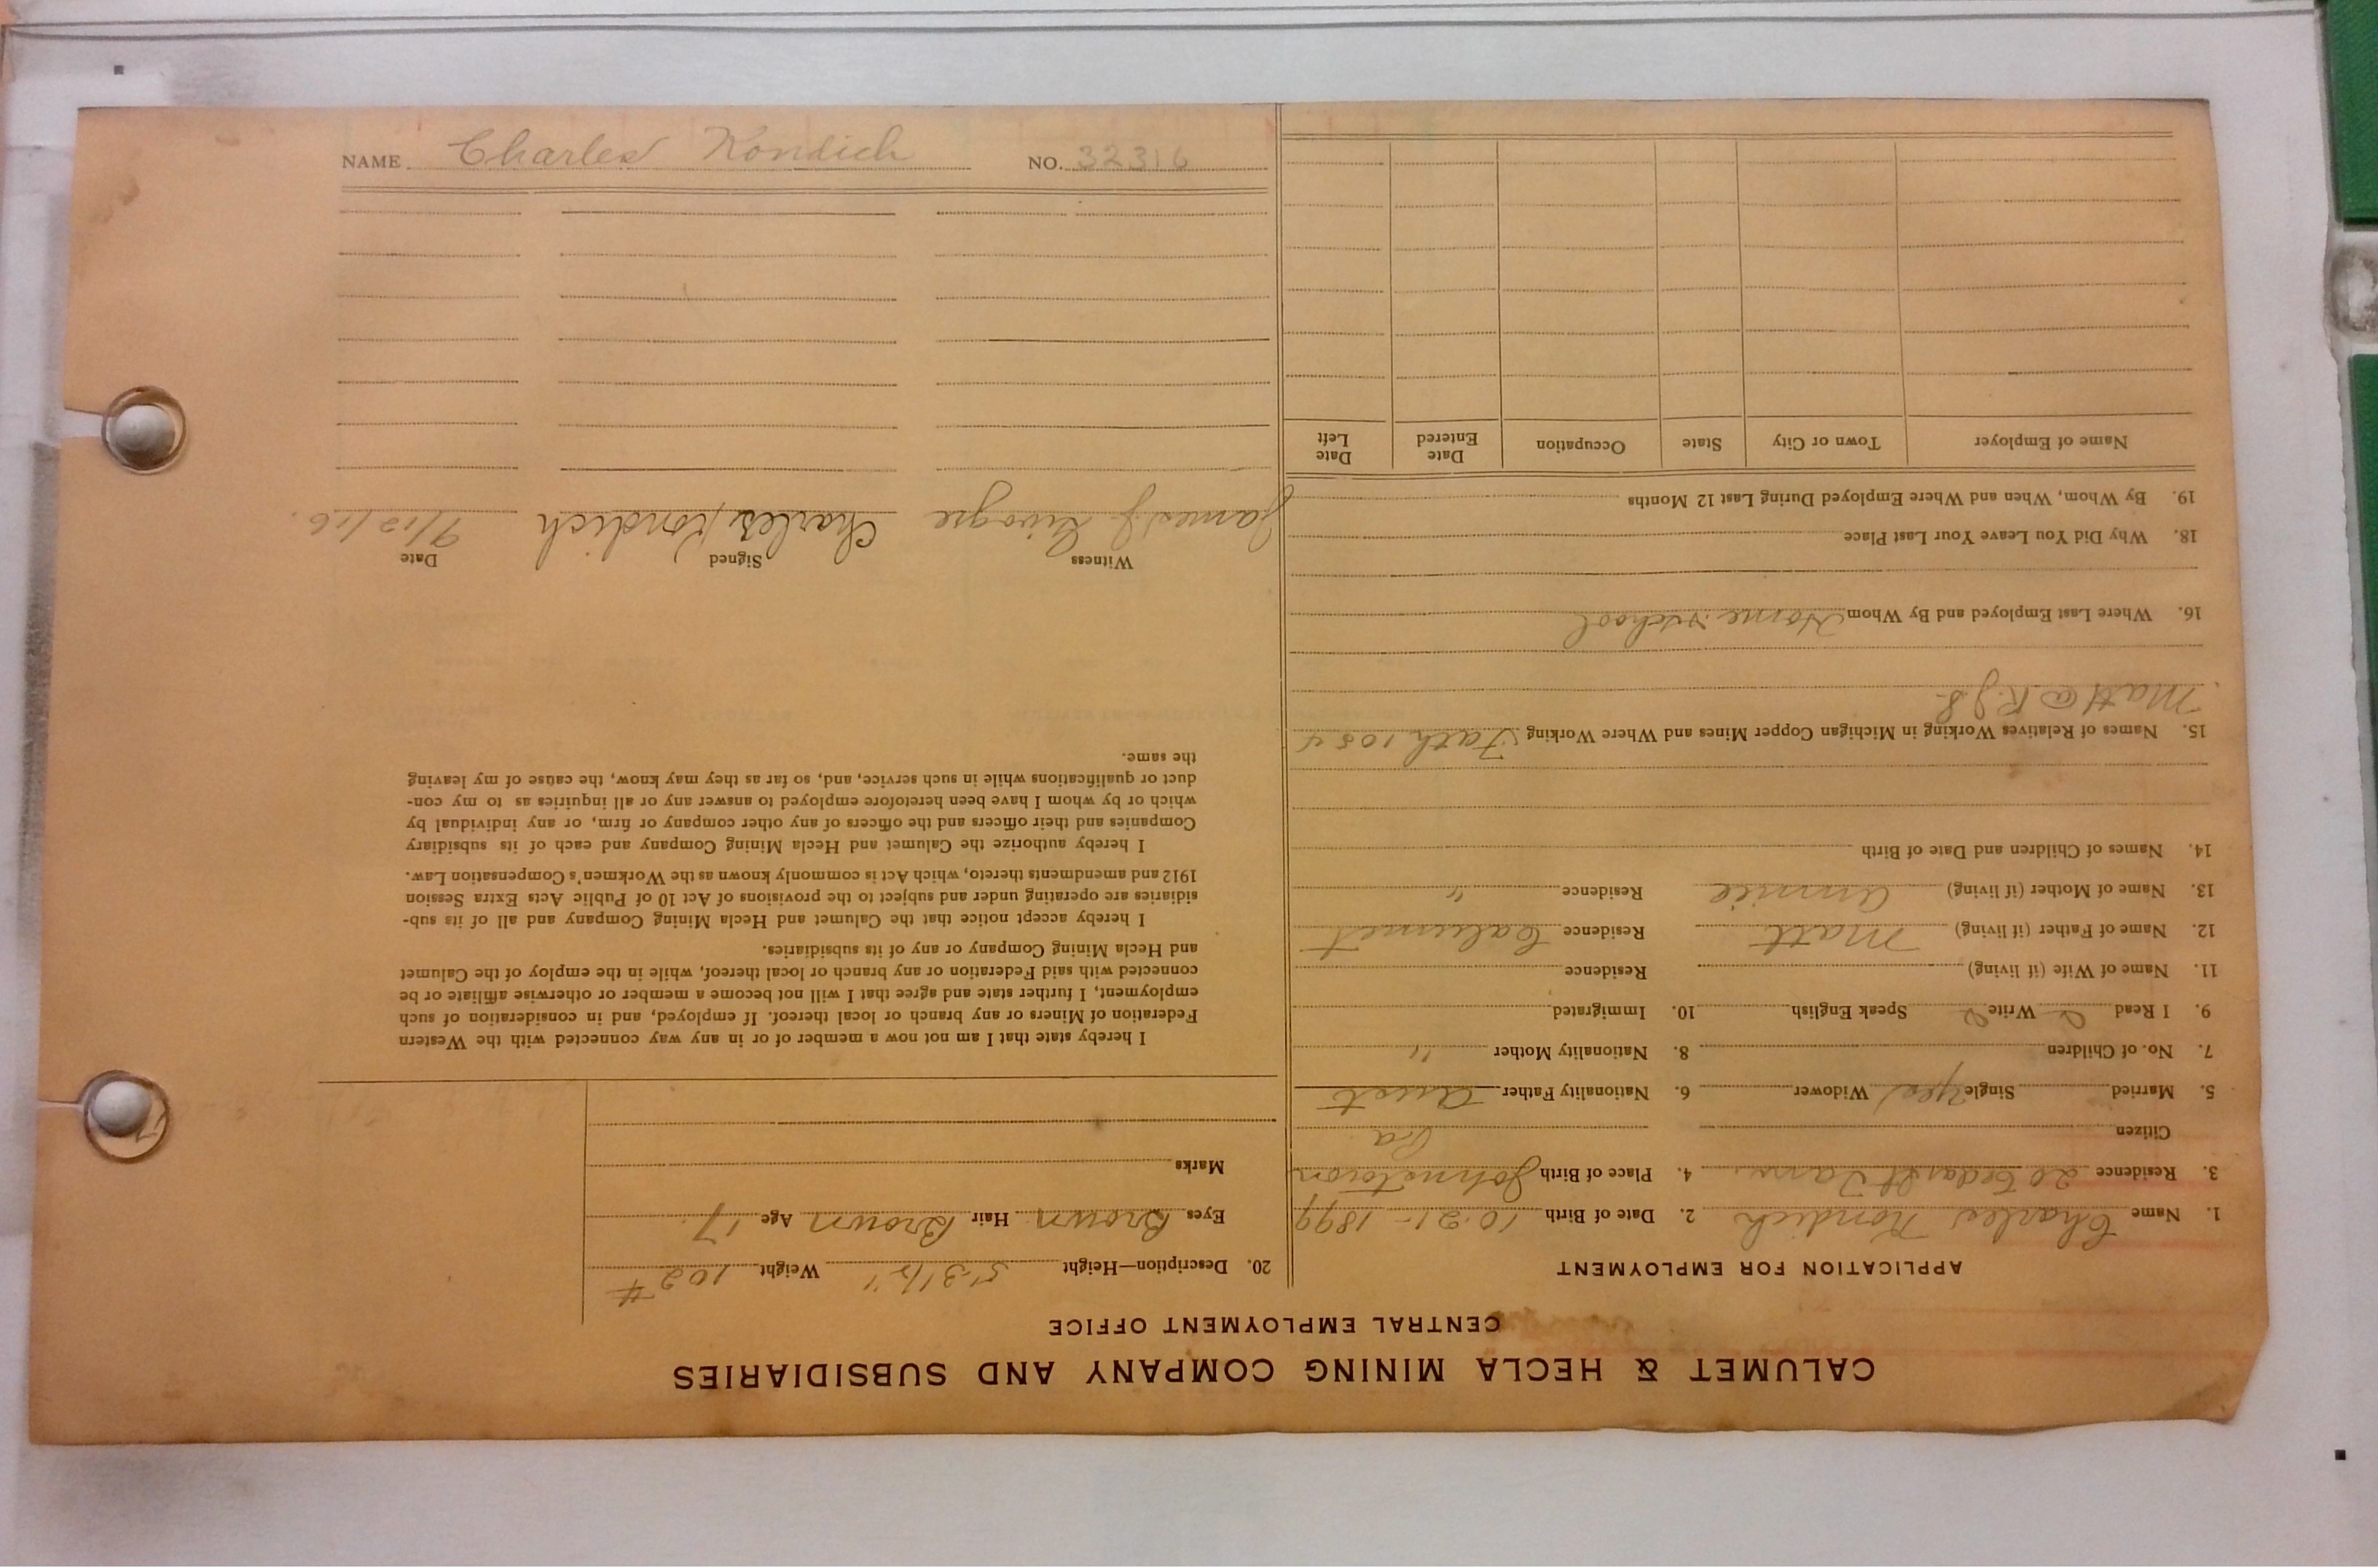 CALUMET & HECLA MINING COMPANY AND SUBSIDIARIES
CENTRAL EMPLOYMENT OFFICE
APPLICATION FOR EMPLOYMENT
1. Name Charles Kondich 2. Date of Birth 10-21-1899
3. Residence 20 Cedar St Tam. 4. Place of Birth Johnstown
Citizen Pa
5. Married Single Yes Widower 6. Nationality Father Aust
7. No. of Children 8. Nationality Mother "
9. I Read Write Speak English 10. Immigrated
11. Name of Wife (if living) Residence
12. Name of Father (if living) Matt Residence Calumet
13. Name of Mother (if living) Annie Residence "
14. Names of Children and Date of Birth
15. Names of Relatives Working in Michigan Copper Mines and Where Working Fath 105
Matt @ R.J.8
16. Where Last Employed and By Whom Home & School
18. Why Did You Leave Your Last Place
19. By Whom, When and Where Employed During Last 12 Months
Name of Employer Town or City State Occupation Date Entered Date Left
20. Description—Height 5'3 1/2" Weight 102 #
Eyes Brown Hair Brown Age 17
Marks
I hereby state that I am not now a member of or in any way connected with the Western
Federation of Miners or any branch or local thereof. If employed, and in consideration of such
employment, I further state and agree that I will not become a member or otherwise affiliate or be
connected with said Federation or any branch or local thereof, while in the employ of the Calumet
and Hecla Mining Company or any of its subsidiaries.
I hereby accept notice that the Calumet and Hecla Mining Company and all of its sub-
sidiaries are operating under and subject to the provisions of Act 10 of Public Acts Extra Session
1912 and amendments thereto, which Act is commonly known as the Workmen's Compensation Law.
I hereby authorize the Calumet and Hecla Mining Company and each of its subsidiary
Companies and their officers and the officers of any other company or firm, or any individual by
which or by whom I have been heretofore employed to answer any or all inquiries as to my con-
duct or qualifications while in such service, and, so far as they may know, the cause of my leaving
the same.
Witness Signed Date
James J. Charles Kondich 9/12/16.
NAME Charles Kondich NO. 32316